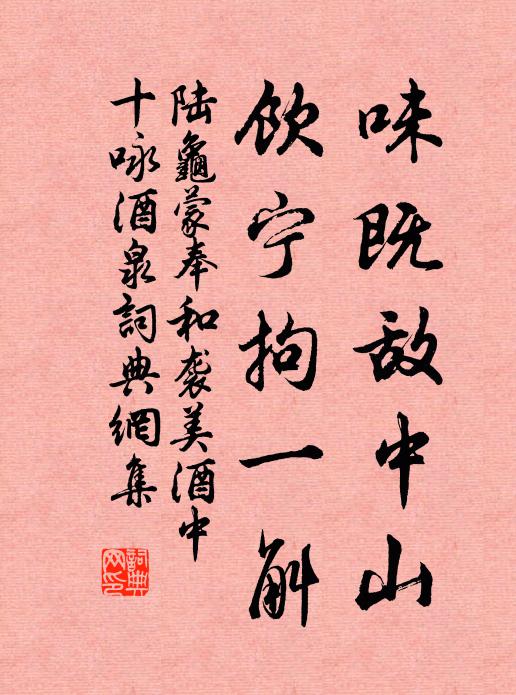 味既敌中山
饮宁拘一斛
陆龜蒙奉和袭美酒中
十咏酒泉詞典網集
詞典
网印